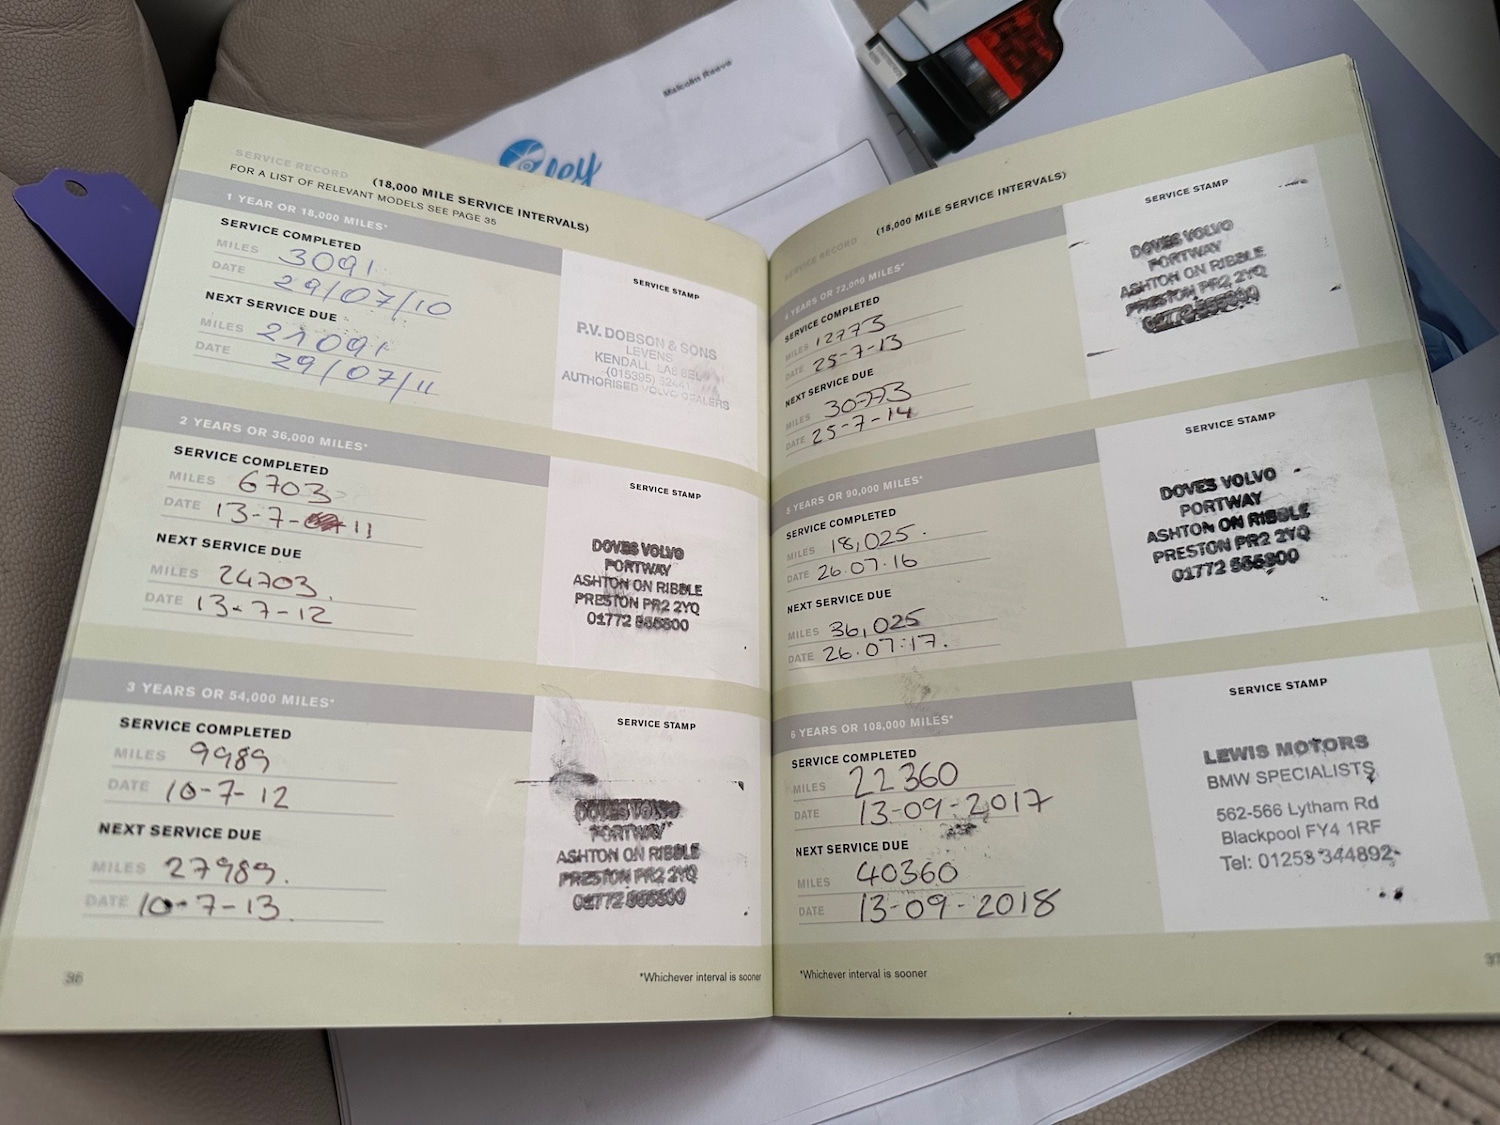 Malcolm Reeve
SERVICE RECORD (18,000 MILE SERVICE INTERVALS)
FOR A LIST OF RELEVANT MODELS SEE PAGE 35
1 YEAR OR 18,000 MILES*
SERVICE COMPLETED
MILES 3091
DATE 29/07/10
NEXT SERVICE DUE
MILES 21091
DATE 29/07/11
SERVICE STAMP
P.V. DOBSON & SONS
LEVENS
KENDALL LA8
(015395)
AUTHORISED VOLVO DEALERS
2 YEARS OR 36,000 MILES*
SERVICE COMPLETED
MILES 6703
DATE 13-7-11
NEXT SERVICE DUE
MILES 24703.
DATE 13-7-12
SERVICE STAMP
DOVES VOLVO
PORTWAY
ASHTON ON RIBBLE
PRESTON PR2 2YQ
01772
3 YEARS OR 54,000 MILES*
SERVICE COMPLETED
MILES 9989
DATE 10-7-12
NEXT SERVICE DUE
MILES 27989.
DATE 10-7-13.
SERVICE STAMP
DOVES VOLVO
PORTWAY
ASHTON ON RIBBLE
PRESTON PR2 2YQ
01772
36
*Whichever interval is sooner
SERVICE RECORD (18,000 MILE SERVICE INTERVALS)
4 YEARS OR 72,000 MILES*
SERVICE COMPLETED
MILES 12773
DATE 25-7-13
NEXT SERVICE DUE
MILES 30773
DATE 25-7-14
SERVICE STAMP
DOVES VOLVO
PORTWAY
ASHTON ON RIBBLE
PRESTON PR2 2YQ
01772
5 YEARS OR 90,000 MILES*
SERVICE COMPLETED
MILES 18,025.
DATE 26.07.16
NEXT SERVICE DUE
MILES 36,025
DATE 26.07.17.
SERVICE STAMP
DOVES VOLVO
PORTWAY
ASHTON ON RIBBLE
PRESTON PR2 2YQ
01772
6 YEARS OR 108,000 MILES*
SERVICE COMPLETED
MILES 22360
DATE 13-09-2017
NEXT SERVICE DUE
MILES 40360
DATE 13-09-2018
SERVICE STAMP
LEWIS MOTORS
BMW SPECIALISTS
562-566 Lytham Rd
Blackpool FY4 1RF
Tel: 01253 344892
*Whichever interval is sooner